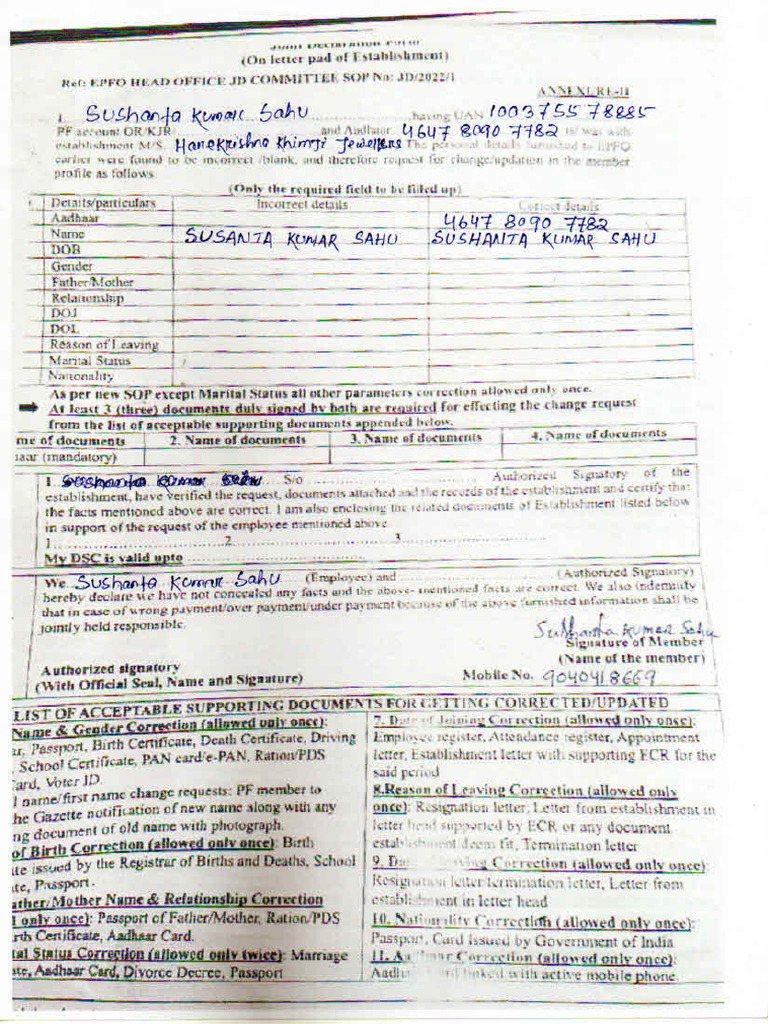 JOINT DECLARATION FORM
(On letter pad of Establishment)
Ref: EPFO HEAD OFFICE JD COMMITTEE SOP No: JD/2022/1
ANNEXURE-II
I, Sushanta Kumar Sahu having UAN 100375578885
PF account OR/KJR and Aadhaar 4647 8090 7782 is/ was with
establishment M/S. Harekrishna Khimji Jewellers The personal details furnished to EPFO
earlier were found to be incorrect /blank, and therefore request for change/updation in the member
profile as follows
(Only the required field to be filled up)
Details/particulars Incorrect details Correct details
Aadhaar 4647 8090 7782
Name SUSANTA KUMAR SAHU SUSHANTA KUMAR SAHU
DOB
Gender
Father/Mother
Relationship
DOJ
DOL
Reason of Leaving
Marital Status
Nationality
As per new SOP except Marital Status all other parameters correction allowed only once.
At least 3 (three) documents duly signed by both are required for effecting the change request
from the list of acceptable supporting documents appended below.
me of documents 2. Name of documents 3. Name of documents 4. Name of documents
aar (mandatory)
I Sushanta Kumar Sahu S/o Authorized Signatory of the
establishment, have verified the request, documents attached and the records of the establishment and certify that
the facts mentioned above are correct. I am also enclosing the related documents of Establishment listed below
in support of the request of the employee mentioned above
1 2 3
My DSC is valid upto
We Sushanta Kumar Sahu (Employee) and (Authorized Signatory)
hereby declare we have not concealed any facts and the above- mentioned facts are correct. We also indemnify
that in case of wrong payment/over payment/under payment because of the above furnished information shall be
jointly held responsible.
Sushanta Kumar Sahu
Signature of Member
Authorized signatory (Name of the member)
(With Official Seal, Name and Signature) Mobile No. 9040418669
LIST OF ACCEPTABLE SUPPORTING DOCUMENTS FOR GETTING CORRECTED/UPDATED
Name & Gender Correction (allowed only once):
ar, Passport, Birth Certificate, Death Certificate, Driving
, School Certificate, PAN card/e-PAN, Ration/PDS
Card, Voter ID.
l name/first name change requests: PF member to
he Gazette notification of new name along with any
ng document of old name with photograph.
of Birth Correction (allowed only once): Birth
te issued by the Registrar of Births and Deaths, School
te, Passport.
ather/Mother Name & Relationship Correction
l only once): Passport of Father/Mother, Ration/PDS
rth Certificate, Aadhaar Card.
tal Status Correction (allowed only twice): Marriage
te, Aadhaar Card, Divorce Decree, Passport
7. Date of Joining Correction (allowed only once):
Employee register, Attendance register, Appointment
letter, Establishment letter with supporting ECR for the
said period
8.Reason of Leaving Correction (allowed only
once): Resignation letter, Letter from establishment in
letter head supported by ECR or any document
establishment deem fit, Termination letter
9. Date of Leaving Correction (allowed only once):
Resignation letter termination letter, Letter from
establishment in letter head
10. Nationality Correction (allowed only once):
Passport, Card Issued by Government of India
11. Aadhaar Correction (allowed only once):
Aadhaar Card linked with active mobile phone.